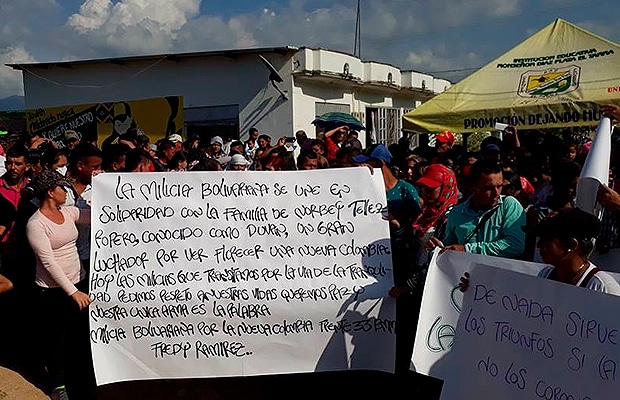 INSTITUCION EDUCATIVA
MONSEÑOR DIAZ PLATA EL TARRA
PROMOCION DEJANDO HU
LA MILICIA BOLIVARIANA SE UNE EN
SOLIDARIDAD CON LA FAMILIA DE NORBEY TELLEZ
POPERO, CONOCIDO COMO DUVAN, UN GRAN
LUCHADOR POR VER FLORECER UNA NUEVA COLOMBIA.
HOY LAS MILICIAS QUE TRANSITAMOS POR LA VIA DE LA TRANQUILI-
DAD PEDIMOS RESPETO A NUESTRAS VIDAS QUEREMOS PAZ Y
NUESTRA UNICA ARMA ES LA PALABRA
MILICIA BOLIVARIANA POR LA NUEVA COLOMBIA FRENTE 33 FARC
FREDY RAMIREZ..
DE NADA SIRVE
LOS TRIUNFOS SI LA
NO LOS